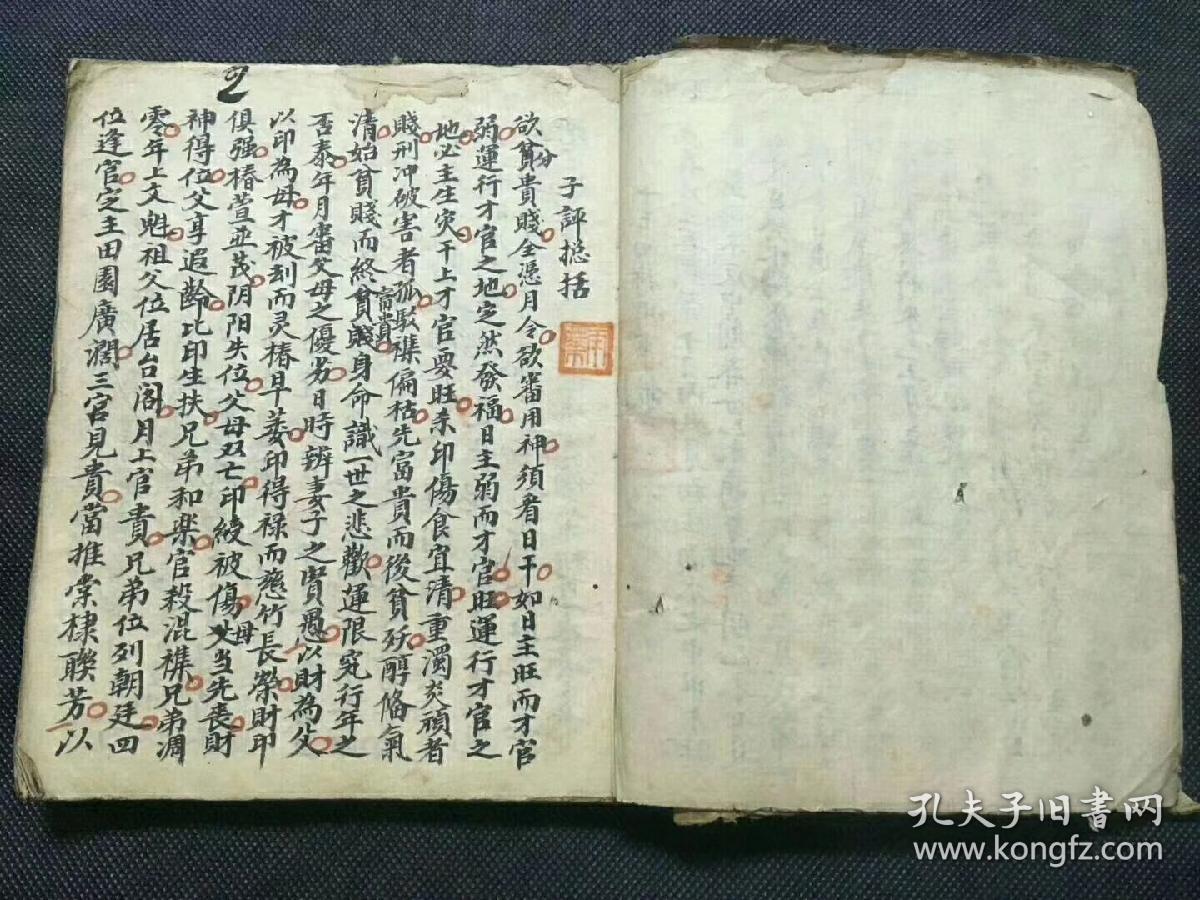 子評摠括
欲分貧貴賤全憑月令欲審用神須看日干如日主旺而才官
弱運行才官之地定然發福日主弱而才官旺運行才官之
地必主生灾干上才官要旺未印傷食宜清重濁炎頑者
賤刑冲破害者孤駁襍偏枯先富貴而後貧殀醇脩氣
清始貧賤而終富貴貧賤身命識一世之悲歡運限究行年之
否泰年月審父母之優劣日時辨妻子之賢愚以財為父
以印為母才被刦而灵椿早萎印得禄而慈竹長榮財印
俱强椿萱並茂阴阳失位父母双亡印綬被傷母父当先丧財
神得位父享遐齡比印生扶兄弟和楽官殺混襍兄弟凋
零年上文魁祖父位居台阁月上官貴兄弟位列朝廷四
位逢官定主田園廣濶三官見貴當推棠棣聯芳以
孔夫子旧书网
www.kongfz.com